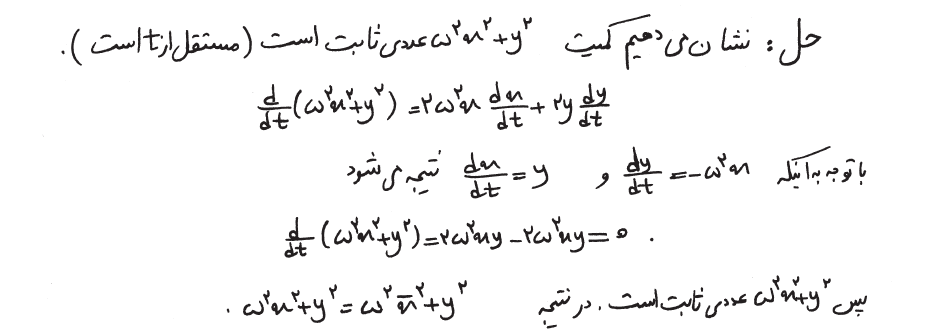 حل : نشان می دهیم کمیت ω²x²+y² عددی ثابت است (مستقل از t است).
d/dt (ω²x²+y²) = ۲ω²x dx/dt + ۲y dy/dt
با توجه به اینکه dy/dt = -ω²x و dx/dt = y نتیجه می شود
d/dt (ω²x²+y²) = ۲ω²xy - ۲ω²xy = ۰ .
پس ω²x²+y² عددی ثابت است . در نتیجه ω²x²+y² = ω²x̄²+y² .